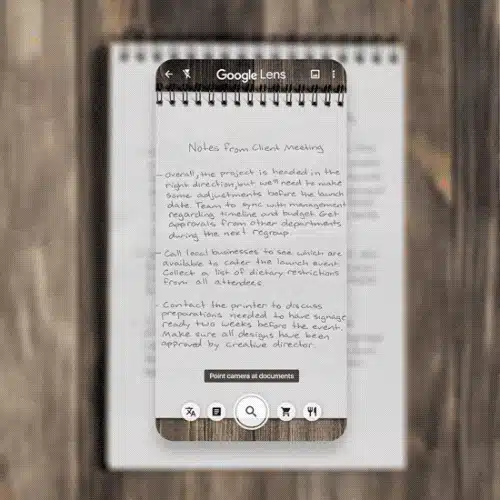 Google Lens
Notes from Client Meeting
- Overall, the project is headed in the
right direction, but we'll need to make
some adjustments before the launch
date. Team to sync with management
regarding timeline and budget. Get
approvals from other departments
during the next regroup.
- Call local businesses to see which are
available to cater the launch event.
Collect a list of dietary restrictions
from all attendees.
- Contact the printer to discuss
preparations needed to have signage
ready two weeks before the event.
Make sure all designs have been
approved by creative director.
Point camera at documents